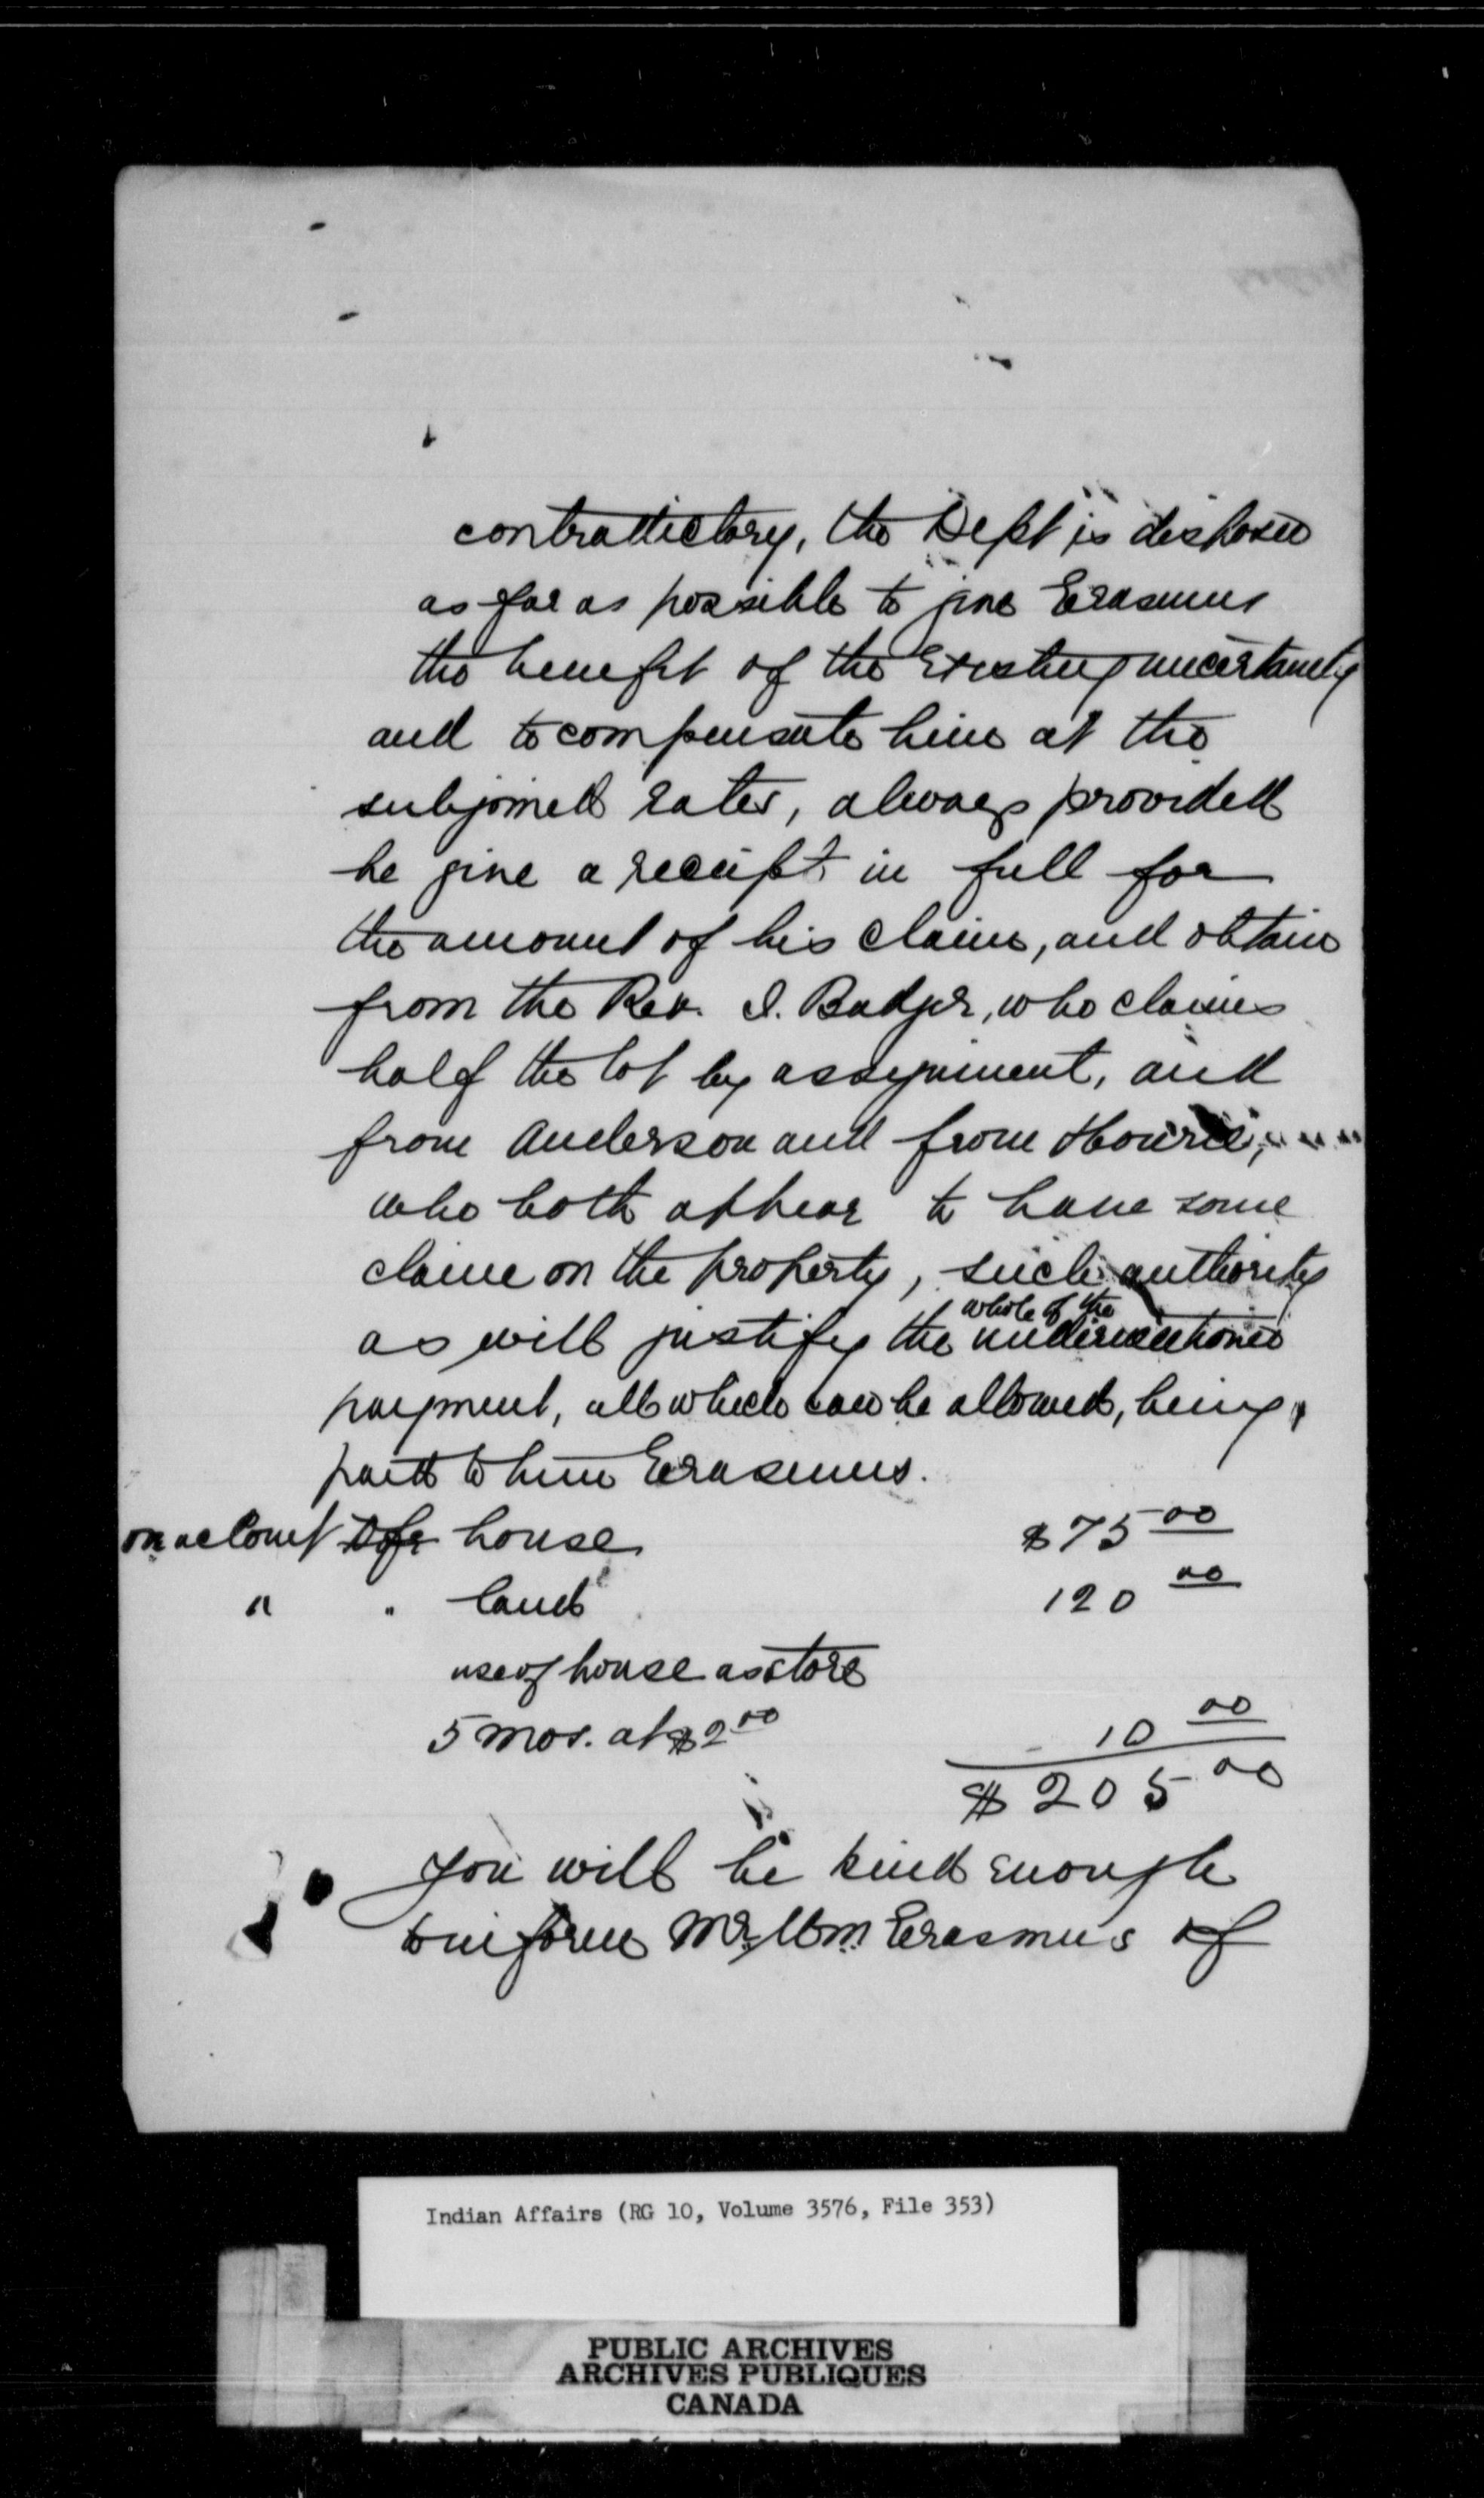 contradictory, the Dept is disposed
as far as possible to give Erasmus
the benefit of the existing uncertainty
and to compensate him at the
subjoined rates, always provided
he give a receipt in full for
the amount of his claim, and obtain
from the Rev. I. Badger, who claims
half the lot by assignment, and
from Anderson and from Hourie,
who both appear to have some
claim on the property, such authority
whole of the
as will justify the undermentioned
payment, all which can be allowed, being
paid to him Erasmus.
on account of house $75 00
" " land 120 00
use of house as store
5 mos. at $2 00 10 00
$205 00
You will be kind enough
to inform Mr Wm. Erasmus of
Indian Affairs (RG 10, Volume 3576, File 353)
PUBLIC ARCHIVES
ARCHIVES PUBLIQUES
CANADA